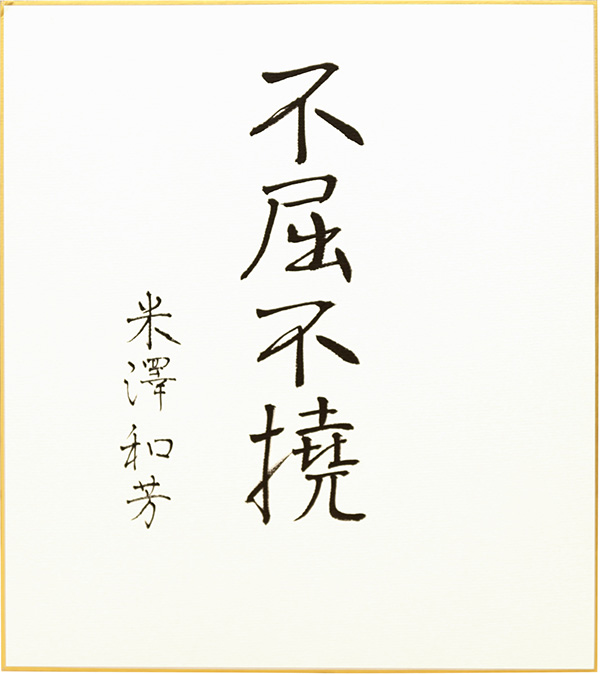 不屈不撓
米澤和芳